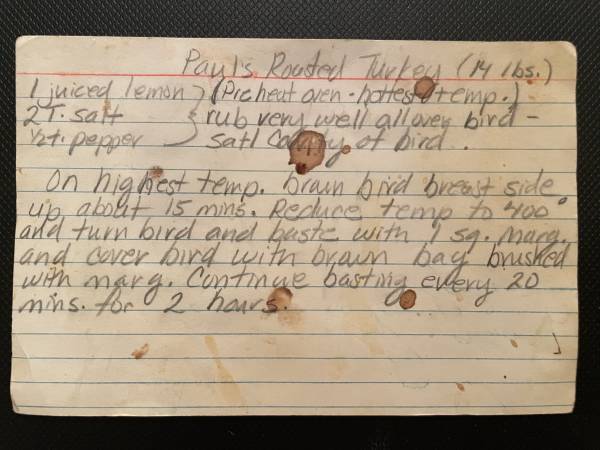 Paul's Roasted Turkey (14 lbs.)
1 juiced lemon } (Preheat oven - hottest temp.)
2 T. salt } rub very well all over bird -
1/2 t. pepper } satl cavity of bird.
On highest temp. brown bird breast side
up about 15 mins. Reduce temp to 400°
and turn bird and baste with 1 sq. marg.
and cover bird with brown bag brushed
with marg. Continue basting every 20
mins. for 2 hours.